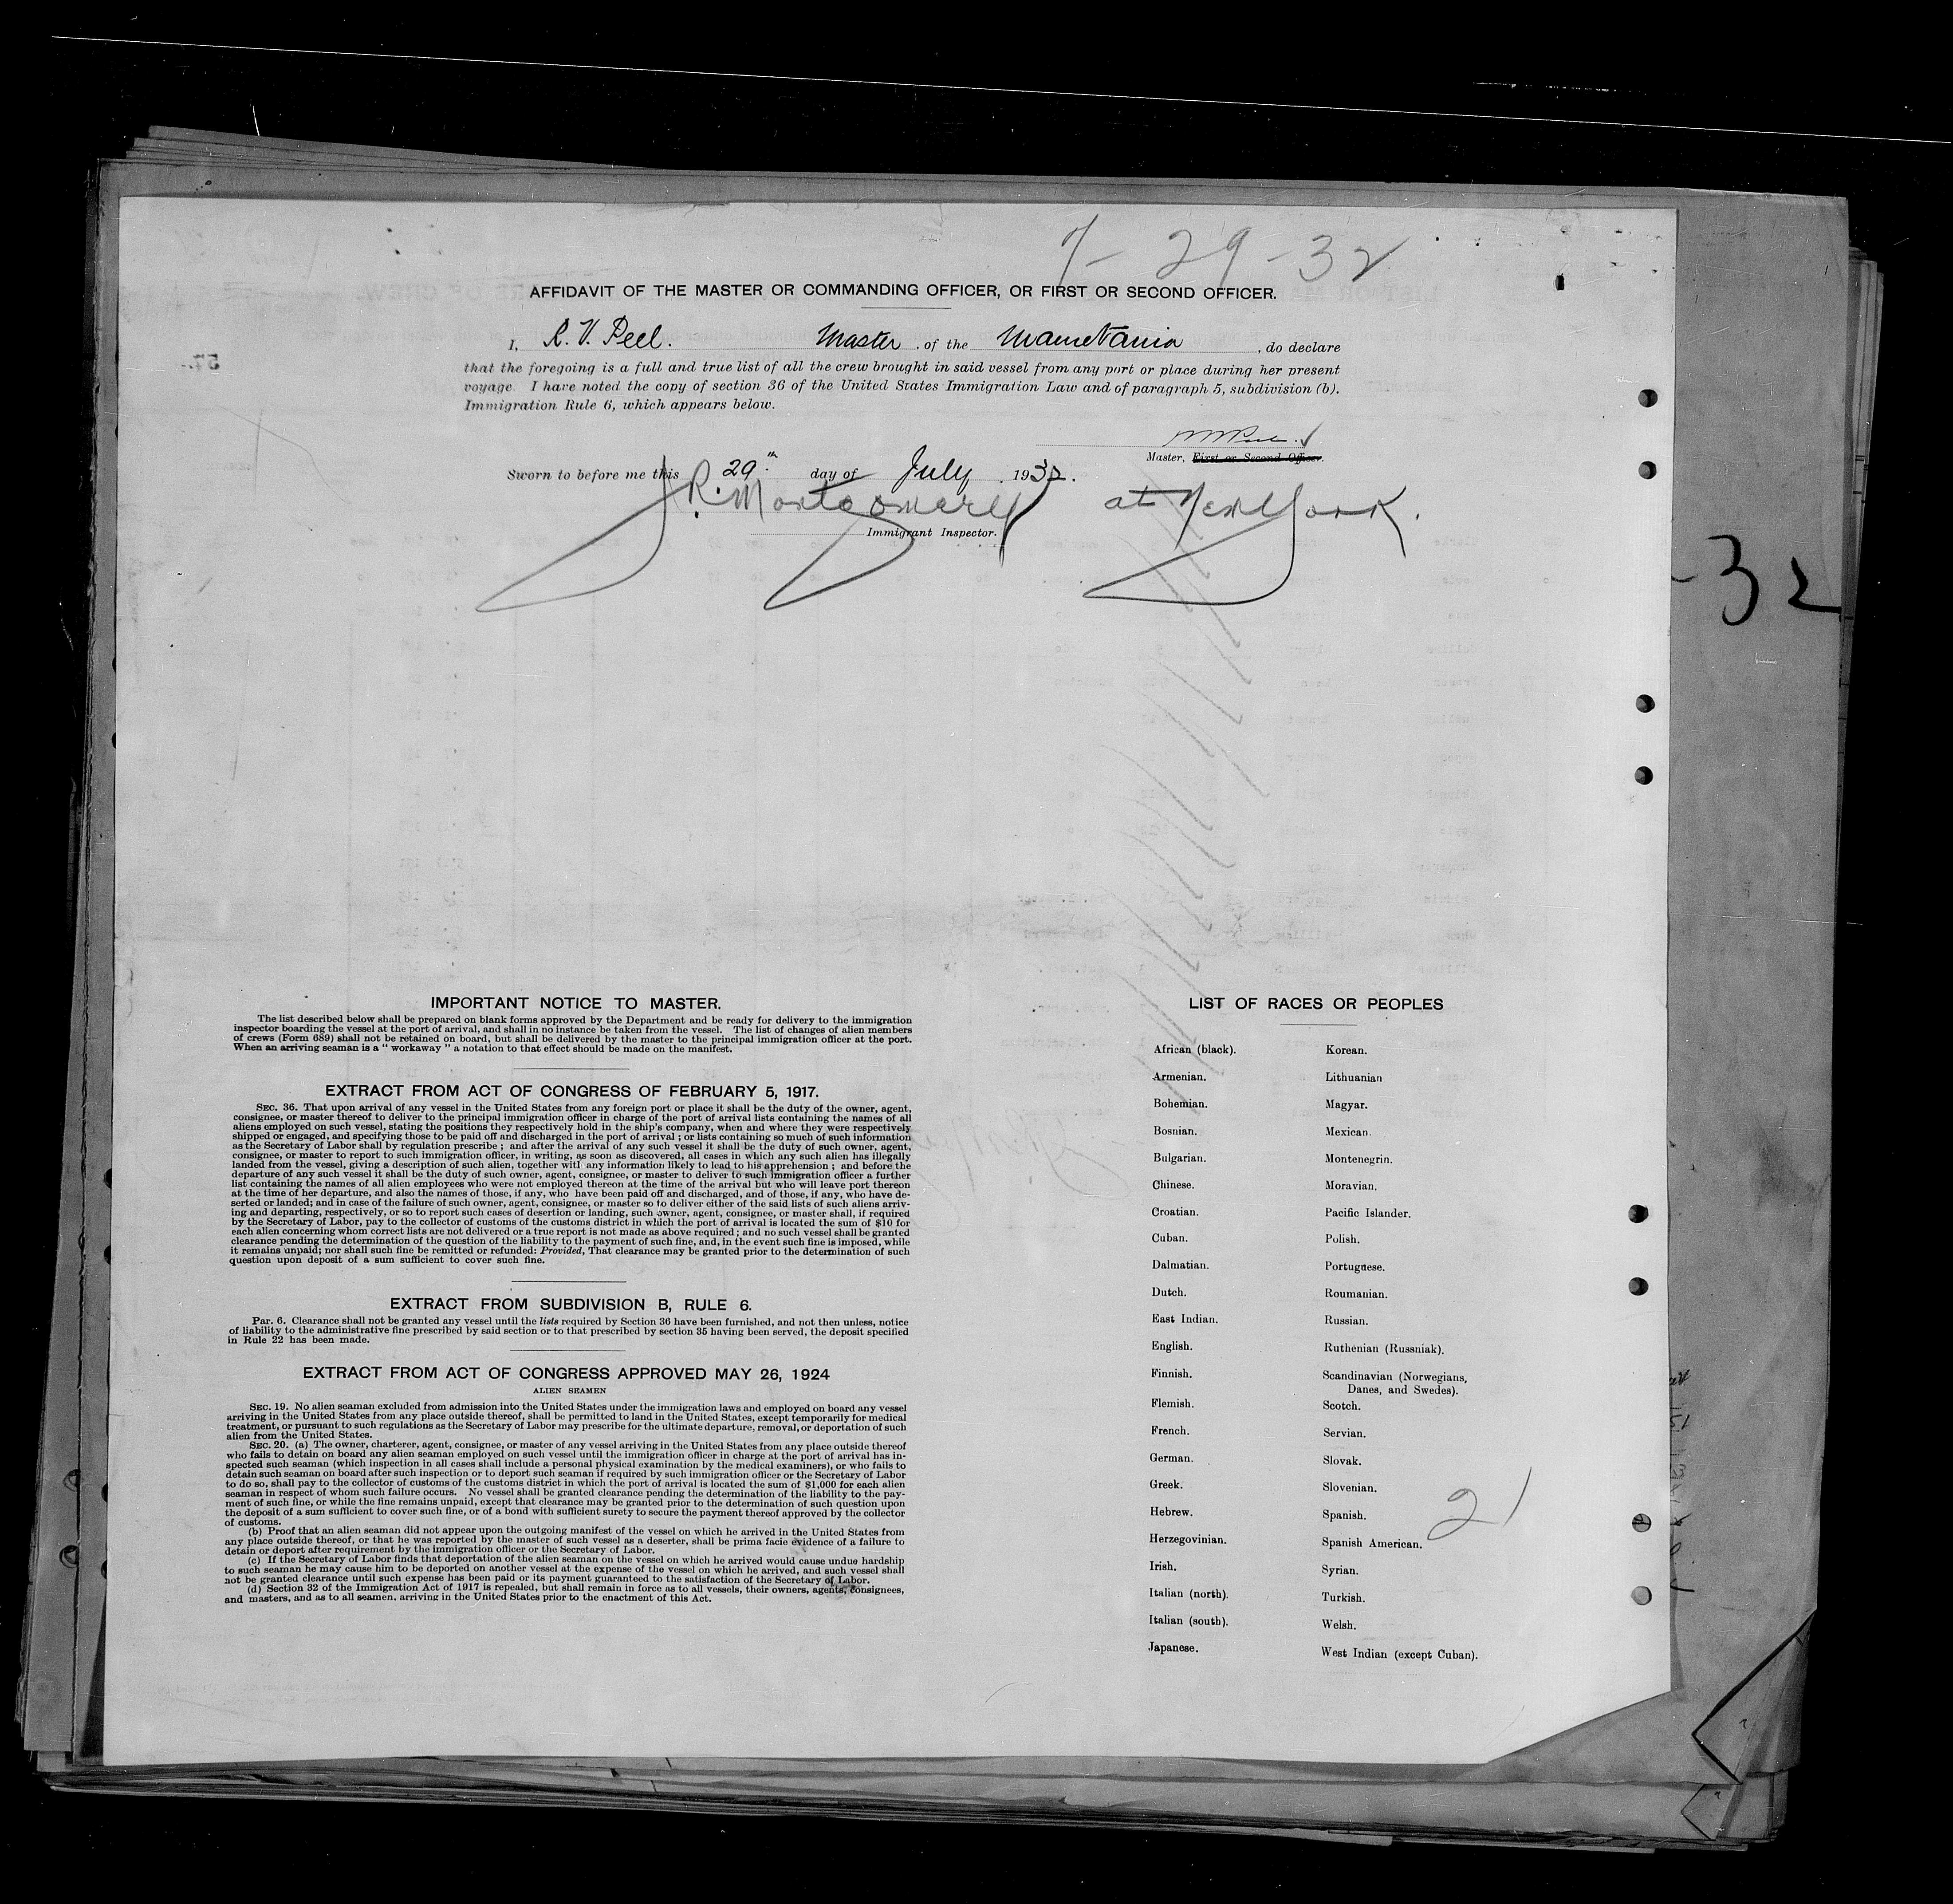 7-29-32
AFFIDAVIT OF THE MASTER OR COMMANDING OFFICER, OR FIRST OR SECOND OFFICER.
I, R. V. Peel. Master, of the Mauretania, do declare
that the foregoing is a full and true list of all the crew brought in said vessel from any port or place during her present
voyage. I have noted the copy of section 36 of the United States Immigration Law and of paragraph 5, subdivision (b).
Immigration Rule 6, which appears below.
Master, First or Second Officer.
Sworn to before me this 29th day of July, 1932.
J. R. Montgomery at New York.
Immigrant Inspector.
-32
IMPORTANT NOTICE TO MASTER.
The list described below shall be prepared on blank forms approved by the Department and be ready for delivery to the immigration
inspector boarding the vessel at the port of arrival, and shall in no instance be taken from the vessel. The list of changes of alien members
of crews (Form 689) shall not be retained on board, but shall be delivered by the master to the principal immigration officer at the port.
When an arriving seaman is a " workaway " a notation to that effect should be made on the manifest.
EXTRACT FROM ACT OF CONGRESS OF FEBRUARY 5, 1917.
SEC. 36. That upon arrival of any vessel in the United States from any foreign port or place it shall be the duty of the owner, agent,
consignee, or master thereof to deliver to the principal immigration officer in charge of the port of arrival lists containing the names of all
aliens employed on such vessel, stating the positions they respectively hold in the ship's company, when and where they were respectively
shipped or engaged, and specifying those to be paid off and discharged in the port of arrival ; or lists containing so much of such information
as the Secretary of Labor shall by regulation prescribe ; and after the arrival of any such vessel it shall be the duty of such owner, agent,
consignee, or master to report to such immigration officer, in writing, as soon as discovered, all cases in which any such alien has illegally
landed from the vessel, giving a description of such alien, together with any information likely to lead to his apprehension ; and before the
departure of any such vessel it shall be the duty of such owner, agent, consignee, or master to deliver to such immigration officer a further
list containing the names of all alien employees who were not employed thereon at the time of the arrival but who will leave port thereon
at the time of her departure, and also the names of those, if any, who have been paid off and discharged, and of those, if any, who have de-
serted or landed; and in case of the failure of such owner, agent, consignee, or master so to deliver either of the said lists of such aliens arriv-
ing and departing, respectively, or so to report such cases of desertion or landing, such owner, agent, consignee, or master shall, if required
by the Secretary of Labor, pay to the collector of customs of the customs district in which the port of arrival is located the sum of $10 for
each alien concerning whom correct lists are not delivered or a true report is not made as above required ; and no such vessel shall be granted
clearance pending the determination of the question of the liability to the payment of such fine, and, in the event such fine is imposed, while
it remains unpaid; nor shall such fine be remitted or refunded: Provided, That clearance may be granted prior to the determination of such
question upon deposit of a sum sufficient to cover such fine.
EXTRACT FROM SUBDIVISION B, RULE 6.
Par. 6. Clearance shall not be granted any vessel until the lists required by Section 36 have been furnished, and not then unless, notice
of liability to the administrative fine prescribed by said section or to that prescribed by section 35 having been served, the deposit specified
in Rule 22 has been made.
EXTRACT FROM ACT OF CONGRESS APPROVED MAY 26, 1924
ALIEN SEAMEN
SEC. 19. No alien seaman excluded from admission into the United States under the immigration laws and employed on board any vessel
arriving in the United States from any place outside thereof, shall be permitted to land in the United States, except temporarily for medical
treatment, or pursuant to such regulations as the Secretary of Labor may prescribe for the ultimate departure, removal, or deportation of such
alien from the United States.
SEC. 20. (a) The owner, charterer, agent, consignee, or master of any vessel arriving in the United States from any place outside thereof
who fails to detain on board any alien seaman employed on such vessel until the immigration officer in charge at the port of arrival has in-
spected such seaman (which inspection in all cases shall include a personal physical examination by the medical examiners), or who fails to
detain such seaman on board after such inspection or to deport such seaman if required by such immigration officer or the Secretary of Labor
to do so, shall pay to the collector of customs of the customs district in which the port of arrival is located the sum of $1,000 for each alien
seaman in respect of whom such failure occurs. No vessel shall be granted clearance pending the determination of the liability to the pay-
ment of such fine, or while the fine remains unpaid, except that clearance may be granted prior to the determination of such question upon
the deposit of a sum sufficient to cover such fine, or of a bond with sufficient surety to secure the payment thereof approved by the collector
of customs.
(b) Proof that an alien seaman did not appear upon the outgoing manifest of the vessel on which he arrived in the United States from
any place outside thereof, or that he was reported by the master of such vessel as a deserter, shall be prima facie evidence of a failure to
detain or deport after requirement by the immigration officer or the Secretary of Labor.
(c) If the Secretary of Labor finds that deportation of the alien seaman on the vessel on which he arrived would cause undue hardship
to such seaman he may cause him to be deported on another vessel at the expense of the vessel on which he arrived, and such vessel shall
not be granted clearance until such expense has been paid or its payment guaranteed to the satisfaction of the Secretary of Labor.
(d) Section 32 of the Immigration Act of 1917 is repealed, but shall remain in force as to all vessels, their owners, agents, consignees,
and masters, and as to all seamen, arriving in the United States prior to the enactment of this Act.
LIST OF RACES OR PEOPLES
African (black). Korean.
Armenian. Lithuanian
Bohemian. Magyar.
Bosnian. Mexican.
Bulgarian. Montenegrin.
Chinese. Moravian.
Croatian. Pacific Islander.
Cuban. Polish.
Dalmatian. Portuguese.
Dutch. Roumanian.
East Indian. Russian.
English. Ruthenian (Russniak).
Finnish. Scandinavian (Norwegians,
Danes, and Swedes).
Flemish. Scotch.
French. Servian.
German. Slovak.
Greek. Slovenian.
Hebrew. Spanish.
Herzegovinian. Spanish American.
Irish. Syrian.
Italian (north). Turkish.
Italian (south). Welsh.
Japanese. West Indian (except Cuban).
21